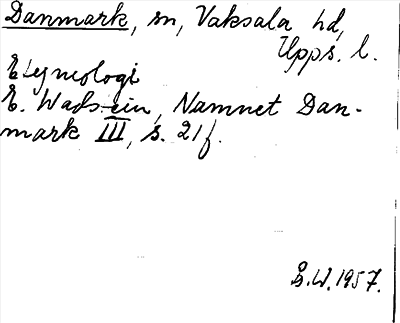 Danmark, sn, Vaksala hd,
Upps. l.
Etymologi
E. Wadstein, Namnet Dan-
mark III, s. 21 f.
B.W. 1957.